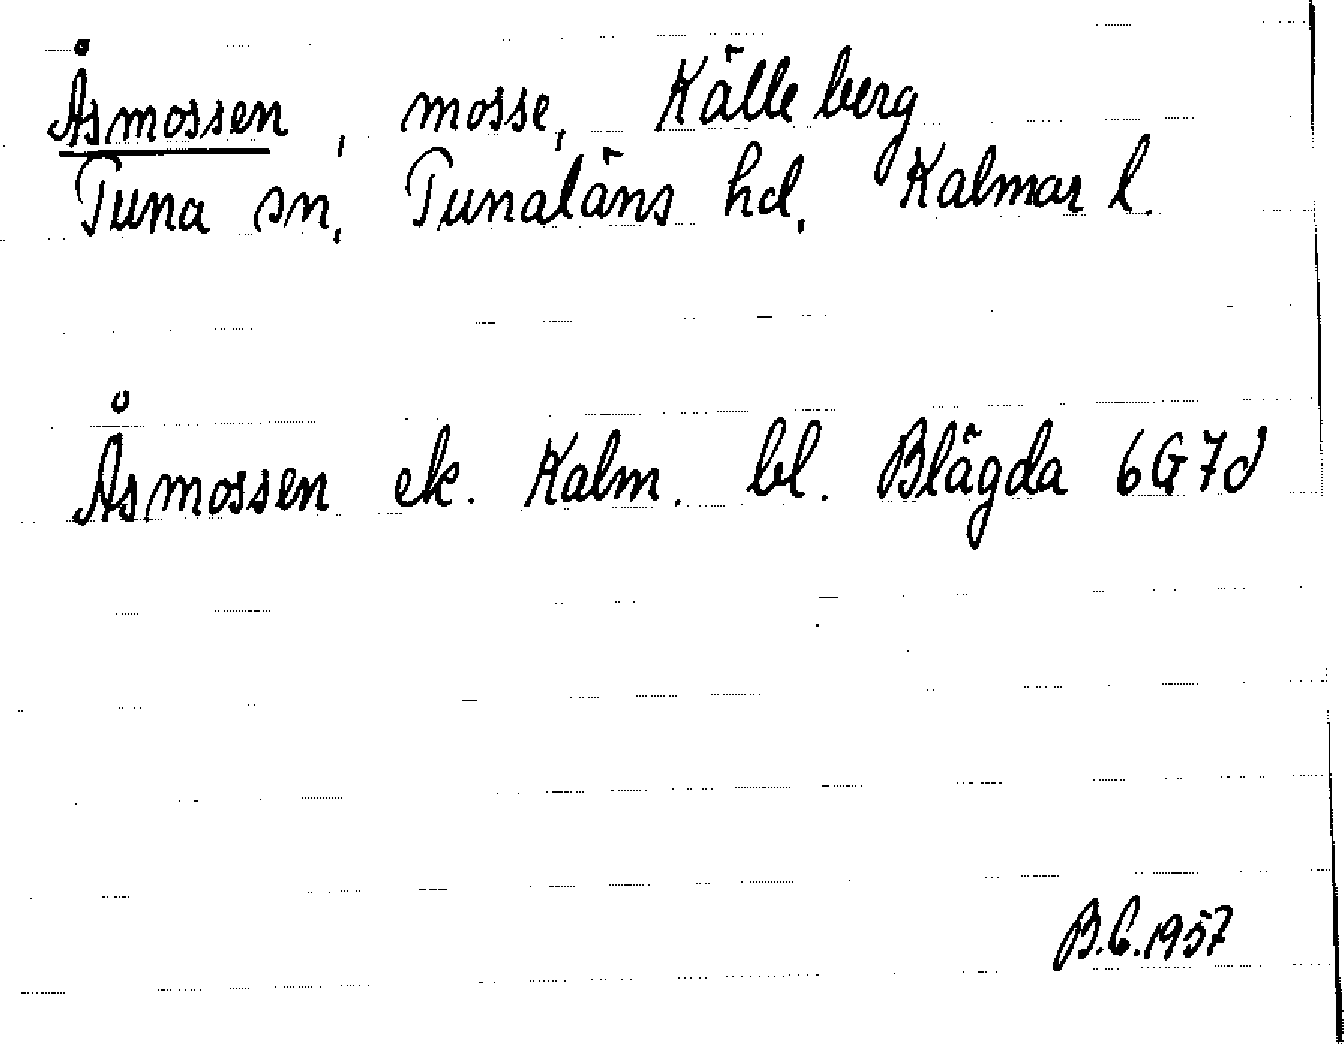 Åsmossen, mosse, Källeberg
Tuna sn, Tunaläns hd, Kalmar l.
Åsmossen ek. Kalm. bl. Blägda 6G7d
B.C.1957